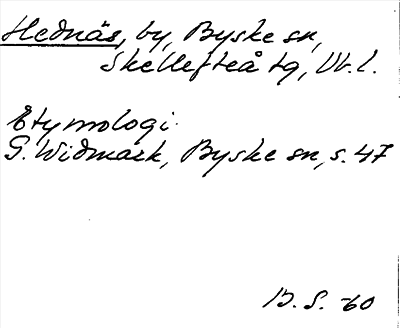 Hednäs, by, Byske sn,
Skellefteå tg, Vb. l.
Etymologi.
G. Widmark, Byske sn, s. 47
B. S. -60